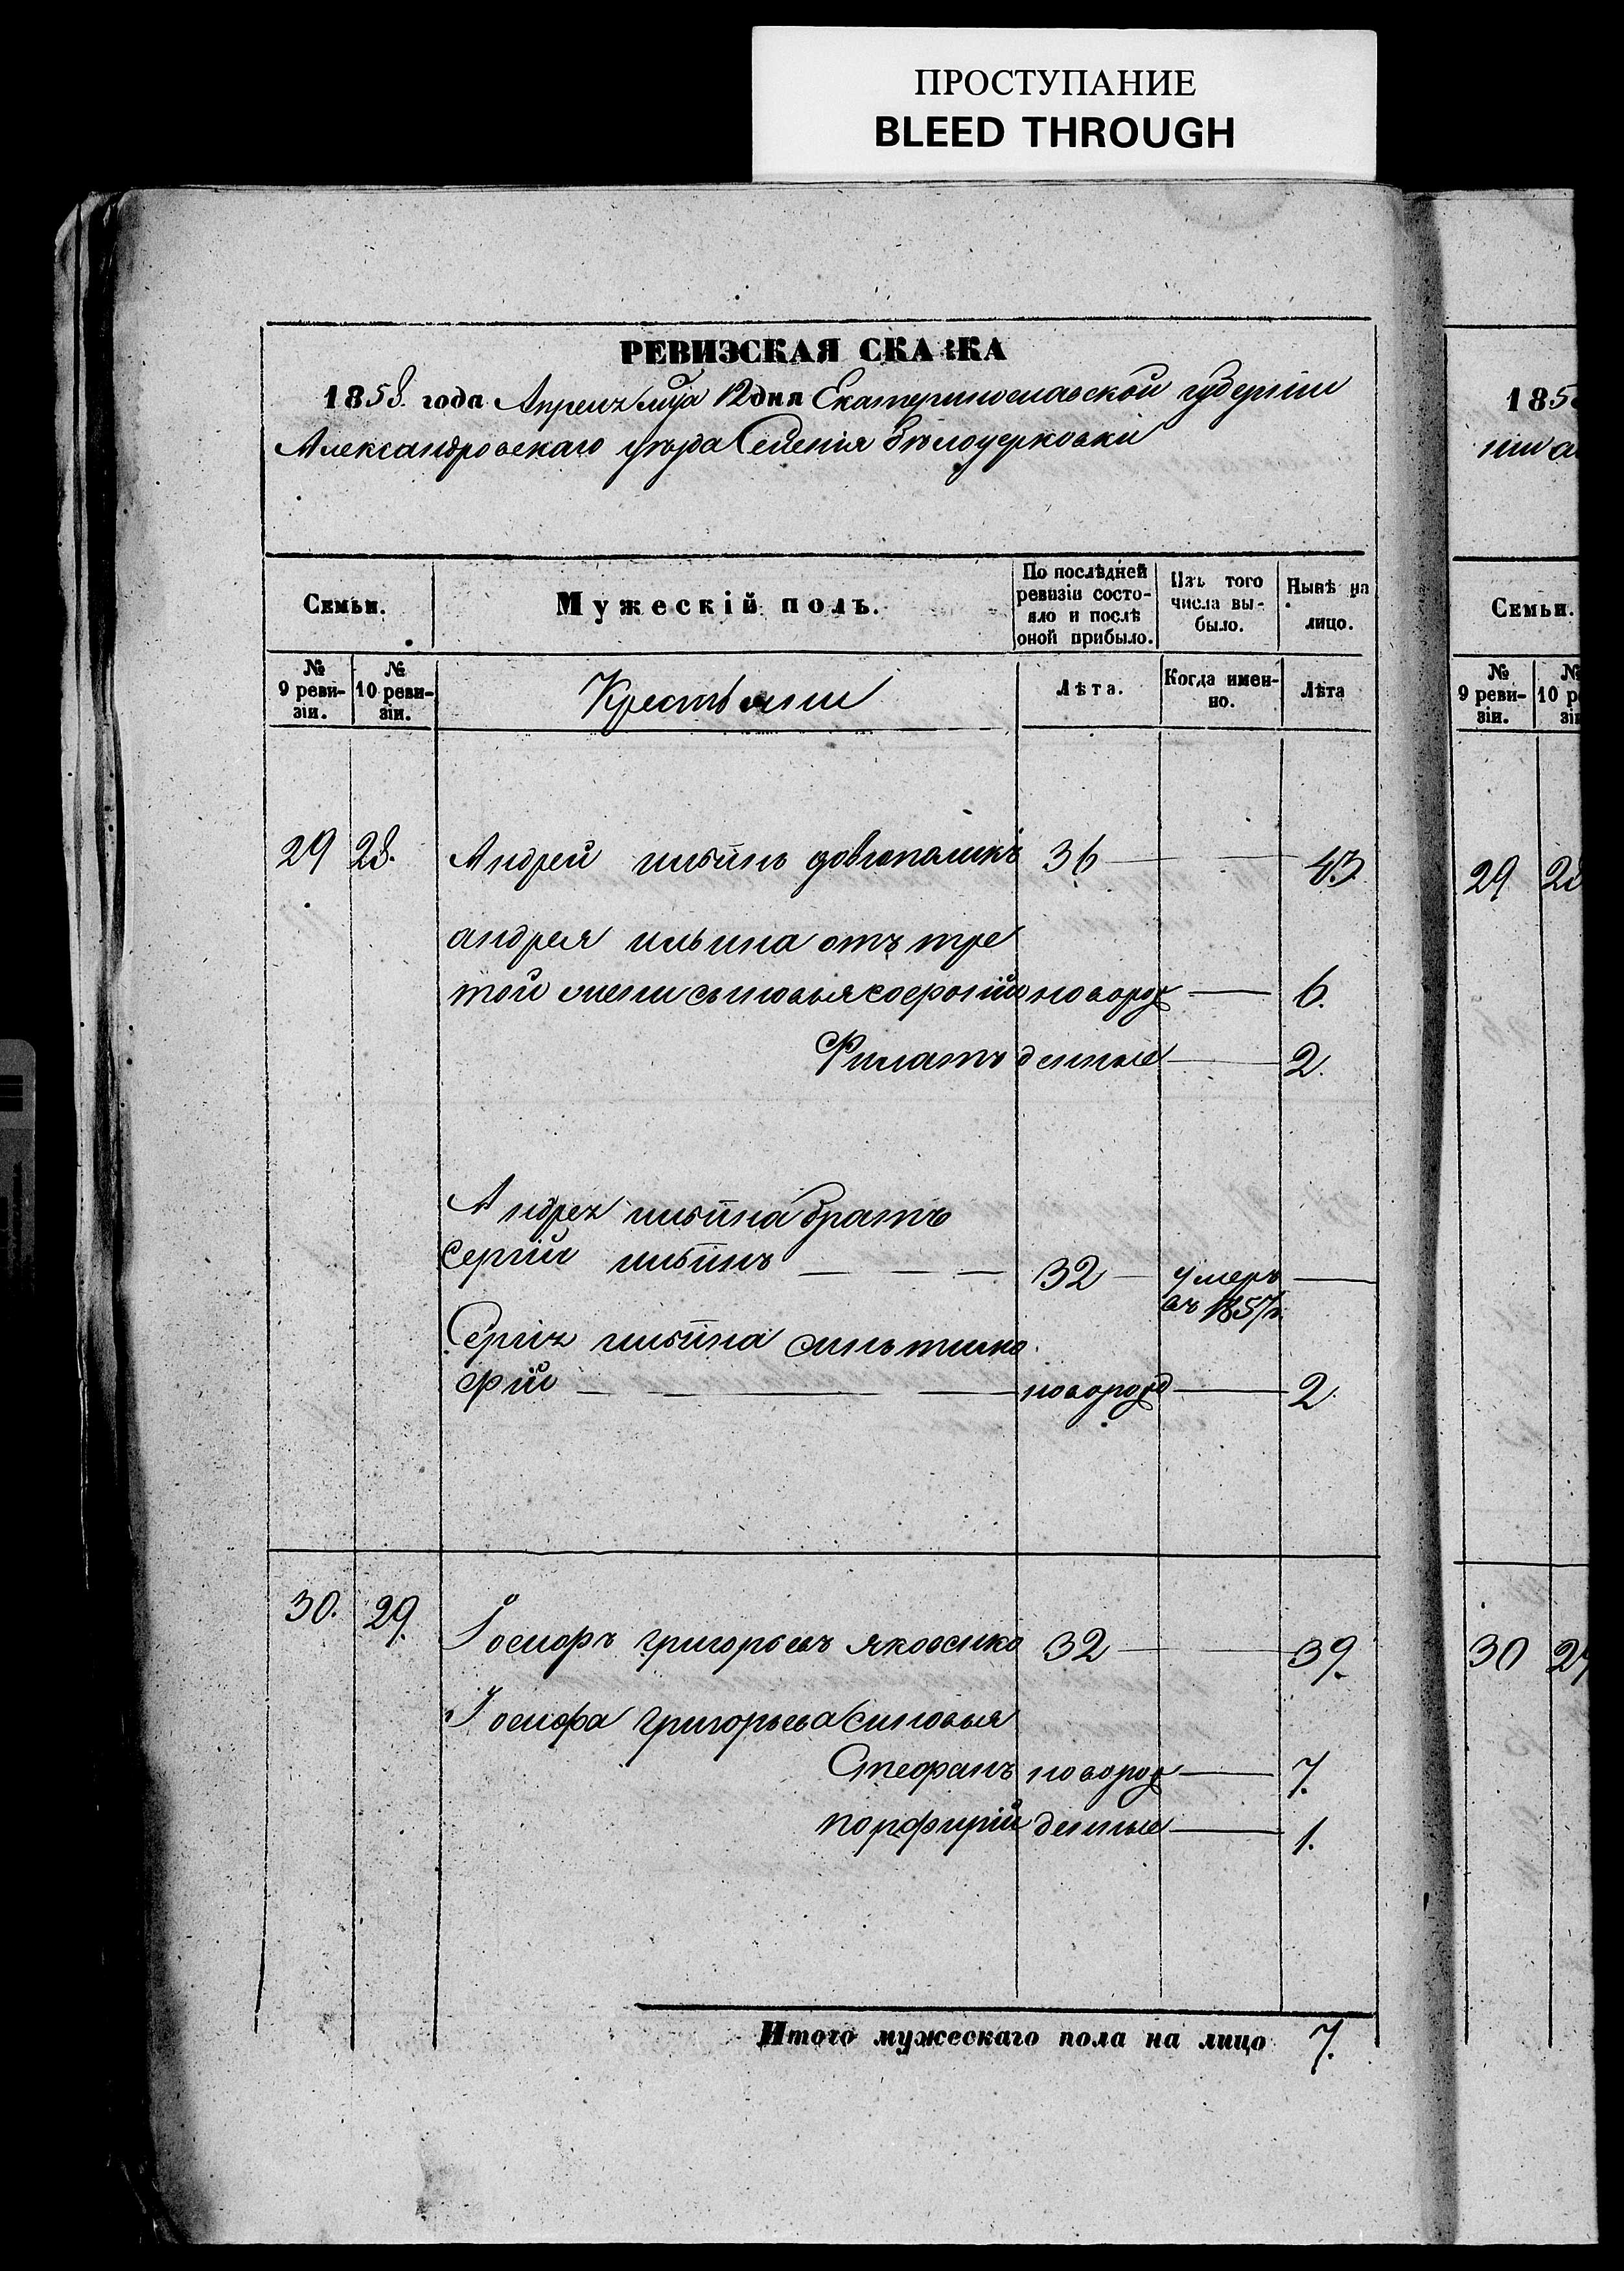 ПРОСТУПАНИЕ
BLEED THROUGH
РЕВИЗСКАЯ СКАЗКА
1858. года Апреля мца 12 дня Екатеринославской губерніи
Александровскаго уѣзда Селенія Бѣлоцерковки
Семьи.
Мужескій полъ.
По послѣдней ревизіи состояло и послѣ оной прибыло.
Изъ того числа выбыло.
Нынѣ на лицо.
№ 9 ревизіи.
№ 10 ревизіи.
Крестьяни
Лѣта.
Когда именно.
Лѣта
29 28. Андрей ильинъ 36 — — 43
андрея ильина отъ тре
той жени сыновья новорож — 6.
Филатъ денные — 2.
Андрея ильина братъ
Сергій ильинъ — — — 32 — умеръ —
въ 1857г.
Сергія ильина синъ тимо
фій — — — новорожд — 2.
30. 29. Іосифъ григорьевъ яковенко 32 — 39.
Іосифа григорьева синовья
Стефанъ новорож — 7.
порфирій денные — 1.
Итого мужескаго пола на лицо 7.
185
Семьи.
№ 9 ревизіи.
29
30